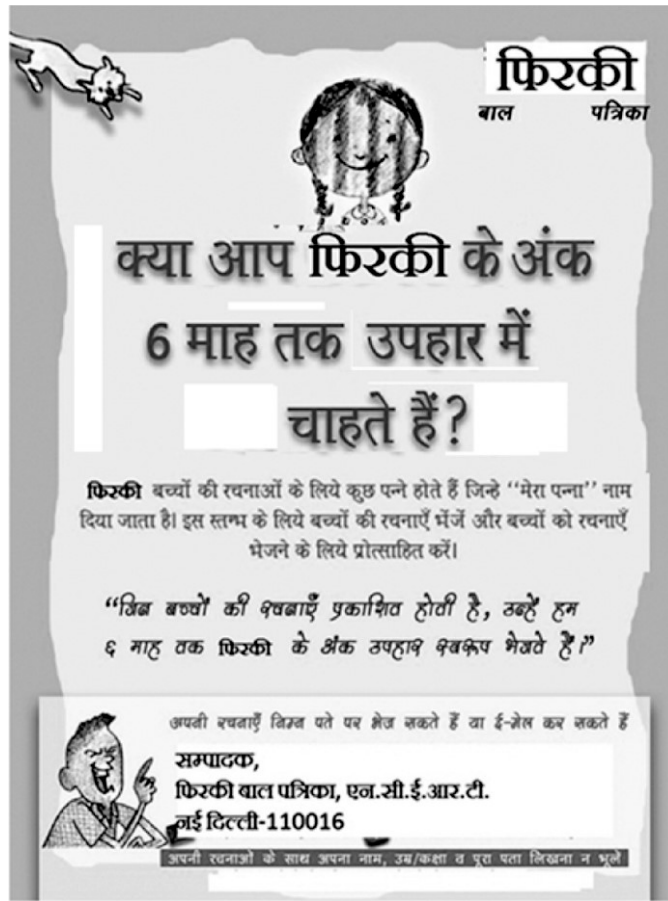 फिरकी
बाल पत्रिका
क्या आप फिरकी के अंक
6 माह तक उपहार में
चाहते हैं?
फिरकी बच्चों की रचनाओं के लिये कुछ पन्ने होते हैं जिन्हे ‘‘मेरा पन्ना’’ नाम
दिया जाता है। इस स्तम्भ के लिये बच्चों की रचनाएँ भेंजें और बच्चों को रचनाएँ
भेजने के लिये प्रोत्साहित करें।
“जिन बच्चों की रचनाएँ प्रकाशित होती है, उन्हें हम
६ माह तक फिरकी के अंक उपहार स्वरूप भेजते हैं।”
अपनी रचनाएँ निम्न पते पर भेज सकते हैं या ई-मेल कर सकते हैं
सम्पादक,
फिरकी बाल पत्रिका, एन.सी.ई.आर.टी.
नई दिल्ली-110016
अपनी रचनाओं के साथ अपना नाम, उम्र/कक्षा व पूरा पता लिखना न भूलें